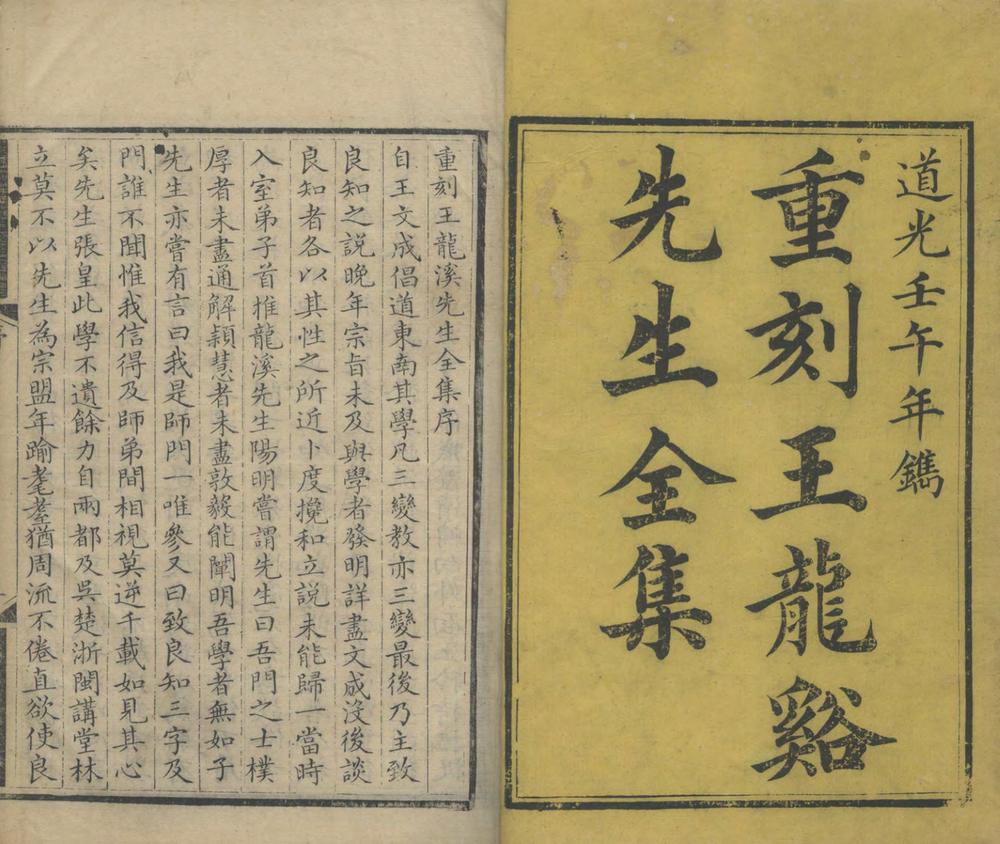 道光壬午年鐫
重刻王龍谿
先生全集
重刻王龍溪先生全集序
自王文成倡道東南其學凡三變教亦三變最後乃主致
良知之説晚年宗旨未及與學者發明詳盡文成沒後談
良知者各以其性之所近卜度攙和立説未能歸一當時
入室弟子首推龍溪先生陽明嘗謂先生曰吾門之士樸
厚者未盡通解穎慧者未盡敦毅能闡明吾學者無如子
先生亦嘗有言曰我是師門一唯參又曰致良知三字及
門誰不聞惟我信得及師弟間相視莫逆千載如見其心
矣先生張皇此學不遺餘力自兩都及吳楚浙閩講堂林
立莫不以先生為宗盟年踰耄耋猶周流不倦直欲使良